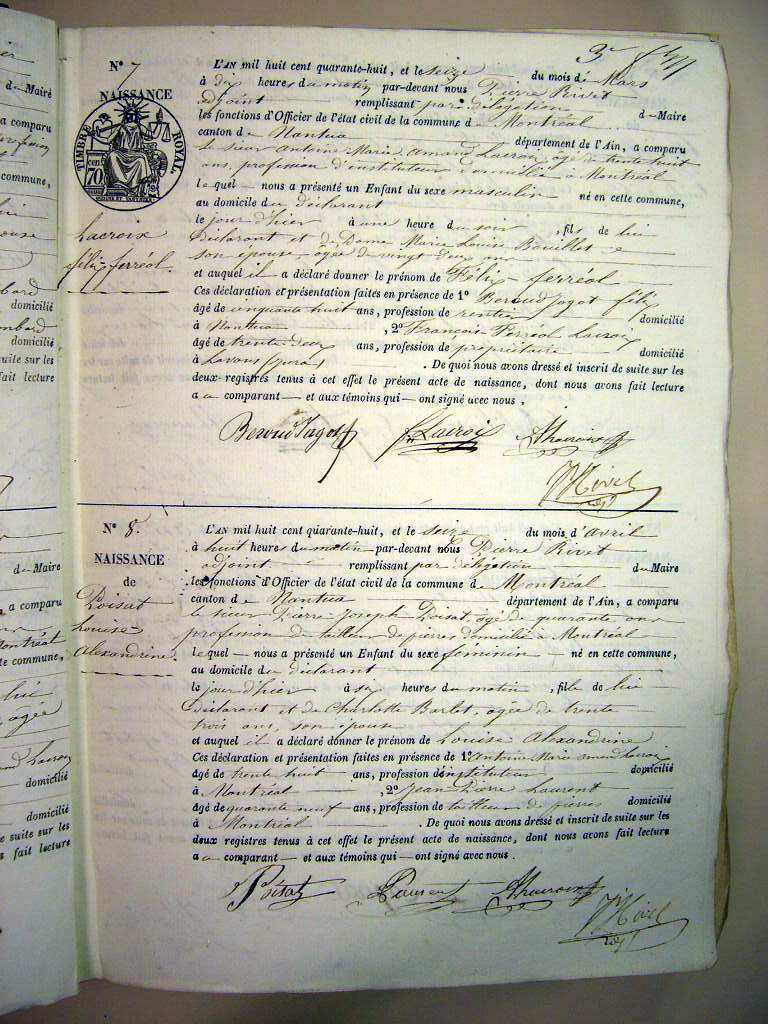 3e f
N° 7
NAISSANCE
TIMBRE ROYAL
cen. 70
Lacroix
félix ferréol.
L'AN mil huit cent quarante-huit, et le seize du mois de Mars
à dix heures du matin par-devant nous Pierre Rivet
adjoint remplissant par délégation de Maire
les fonctions d'Officier de l'état civil de la commune de Montréal
canton de Nantua département de l'Ain, a comparu
le sieur Antoine Marie amand Lacroix, agé de trente huit
ans, profession d'instituteur domicilié à Montréal
lequel — nous a présenté un Enfant du sexe masculin né en cette commune,
au domicile du déclarant
le jour d'hier à une heure du soir, fils de lui
déclarant et de Dame Marie Louise Bouillet
son épouse, agée de vingt deux ans
et auquel il a déclaré donner le prénom de Félix ferréol
Ces déclaration et présentation faites en présence de 1° Beroud Jagot félix
âgé de cinquante huit ans, profession de rentier domicilié
à Nantua , 2° François Ferréol Lacroix
âgé de trente deux ans, profession de propriétaire domicilié
à Lavans (jura) . De quoi nous avons dressé et inscrit de suite sur les
deux registres tenus à cet effet le présent acte de naissance, dont nous avons fait lecture
a u comparant — et aux témoins qui — ont signé avec nous .
Beroud Jagot f. Lacroix ALacroix
P Rivet
adjt
N° 8.
NAISSANCE
de
Poisat
Louise
Alexandrine.
L'AN mil huit cent quarante-huit, et le seize du mois d'avril
à huit heures du matin par-devant nous Pierre Rivet
adjoint remplissant par délégation de Maire
les fonctions d'Officier de l'état civil de la commune de Montréal
canton de Nantua département de l'Ain, a comparu
le sieur Pierre Joseph Poisat, agé de quarante ans
profession de tailleur de pierres domicilié à Montréal
lequel — nous a présenté un Enfant du sexe feminin — né en cette commune,
au domicile du déclarant
le jour d'hier à six heures du matin , fille de lui
déclarant et de Charlotte Barlet, agée de trente
trois ans, son épouse
et auquel il a déclaré donner le prénom de Louise Alexandrine
Ces déclaration et présentation faites en présence de 1° Antoine Marie amand Lacroix
âgé de trente huit ans, profession d'instituteur domicilié
à Montréal , 2° Jean Pierre Laurent
âgé de quarante neuf ans, profession de tailleur de pierres domicilié
à Montréal . De quoi nous avons dressé et inscrit de suite sur les
deux registres tenus à cet effet le présent acte de naissance, dont nous avons fait lecture
a u comparant — et aux témoins qui — ont signé avec nous .
Poisat Laurent ALacroix
P Rivet
adjt